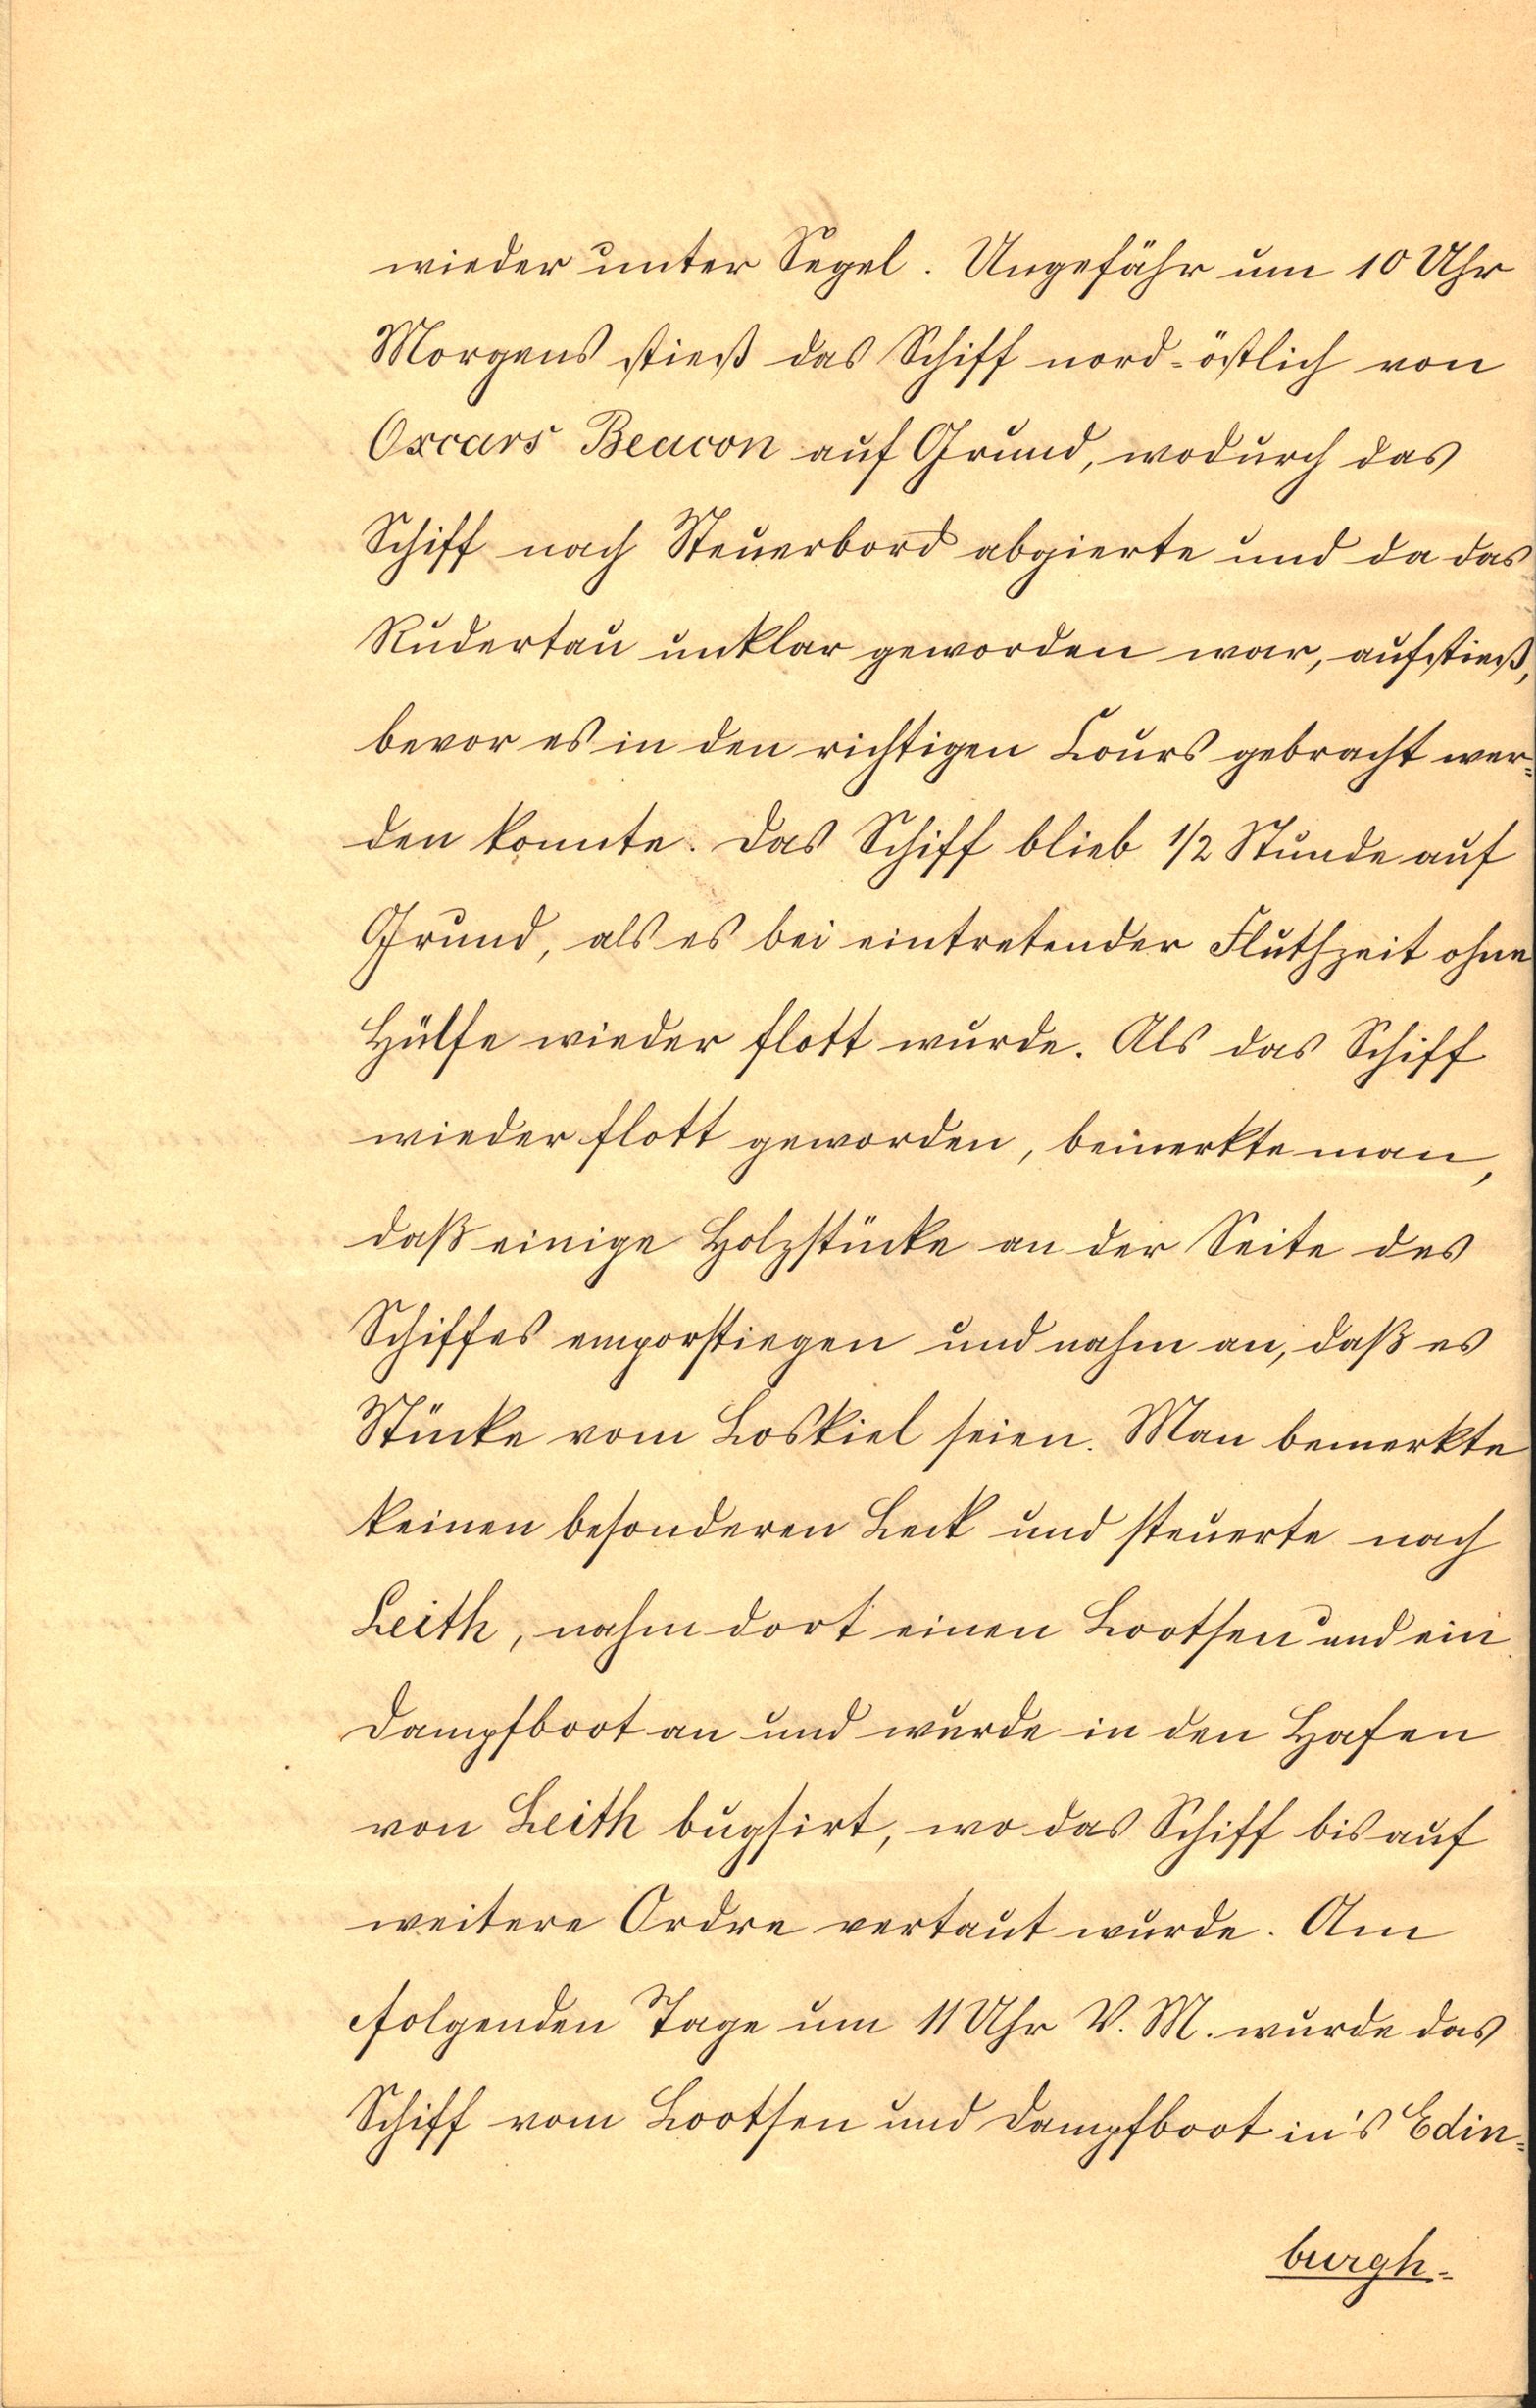 wieder unter Segel. Ungefähr um 10 Uhr
Morgens stieß das Schiff nord-östlich von
Oxcars Beacon auf Grund, wodurch das
Schiff nach Steuerbord abgierte und da das
Rudertau unklar geworden war, aufstieß,
bevor es in den richtigen Cours gebracht wer-
den konnte. Das Schiff blieb 1/2 Stunde auf
Grund, als es bei eintretender Fluthzeit ohne
Hülfe wieder flott wurde. Als das Schiff
wieder flott geworden, bemerkte man,
daß einige Holzstücke an der Seite des
Schiffes emporstiegen und nahm an, daß es
Stücke vom Loskiel seien. Man bemerkte
keinen besonderen Leck und steuerte nach
Leith, nahm dort einen Lootsen und ein
Dampfboot an und wurde in den Hafen
von Leith bugsirt, wo das Schiff bis auf
weitere Ordre vertaut wurde. Am
folgenden Tage um 11 Uhr V. M. wurde das
Schiff vom Lootsen und Dampfboot in's Edin-
burgh-